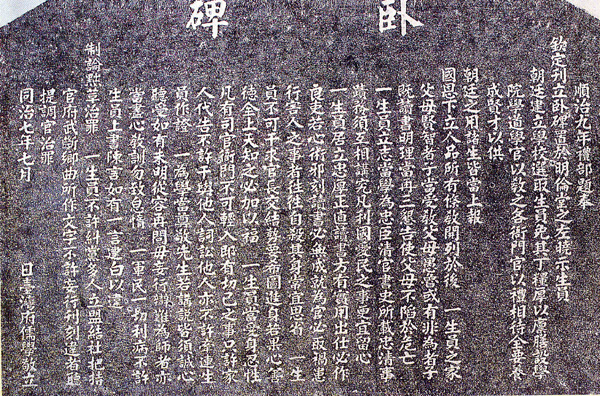 卧碑
順治九年禮部題奉
欽定刊立卧碑置於明倫堂之左曉示生員
朝廷建立學校選取生員免其丁糧厚以廩膳設學
院學道學官以教之各衙門官以禮相待全要養
成賢才以供
朝廷之用諸生皆當上報
國恩下立人品所有條教開列於後　一生員之家
父母賢智者子當受教父母愚魯或有非為者子
既讀書明理當再三懇告使父母不陷於危亡
一生員立志當學為忠臣清官書史所載忠清事
蹟務須互相講究凡利國愛民之事更宜留心
一生員居心忠厚正直讀書方有實用出仕必作
良吏若心術邪刻讀書必無成就為官必取禍患
行害人之事者往往自殺其身常宜思省　一生
員不可干求官長交結勢要希圖進身若果心善
德全上天知之必加以福　一生員當愛身忍性
凡有司官衙門不可輕入即有切己之事只許家
人代告不許干與他人詞訟他人亦不許牽連生
員作證　一為學當尊敬先生若講說皆須誠心
聽受如有未明從容再問毋妄行辯難為師者亦
當盡心教訓勿致怠惰　一軍民一切利病不許
生員上書陳言如有一言建白以違
制論黜革治罪　一生員不許糾黨多人立盟結社把持
官府武斷鄉曲所作文字不許妄行刊刻違者聽
提調官治罪
同治七年七月　日臺灣府儒學敬立